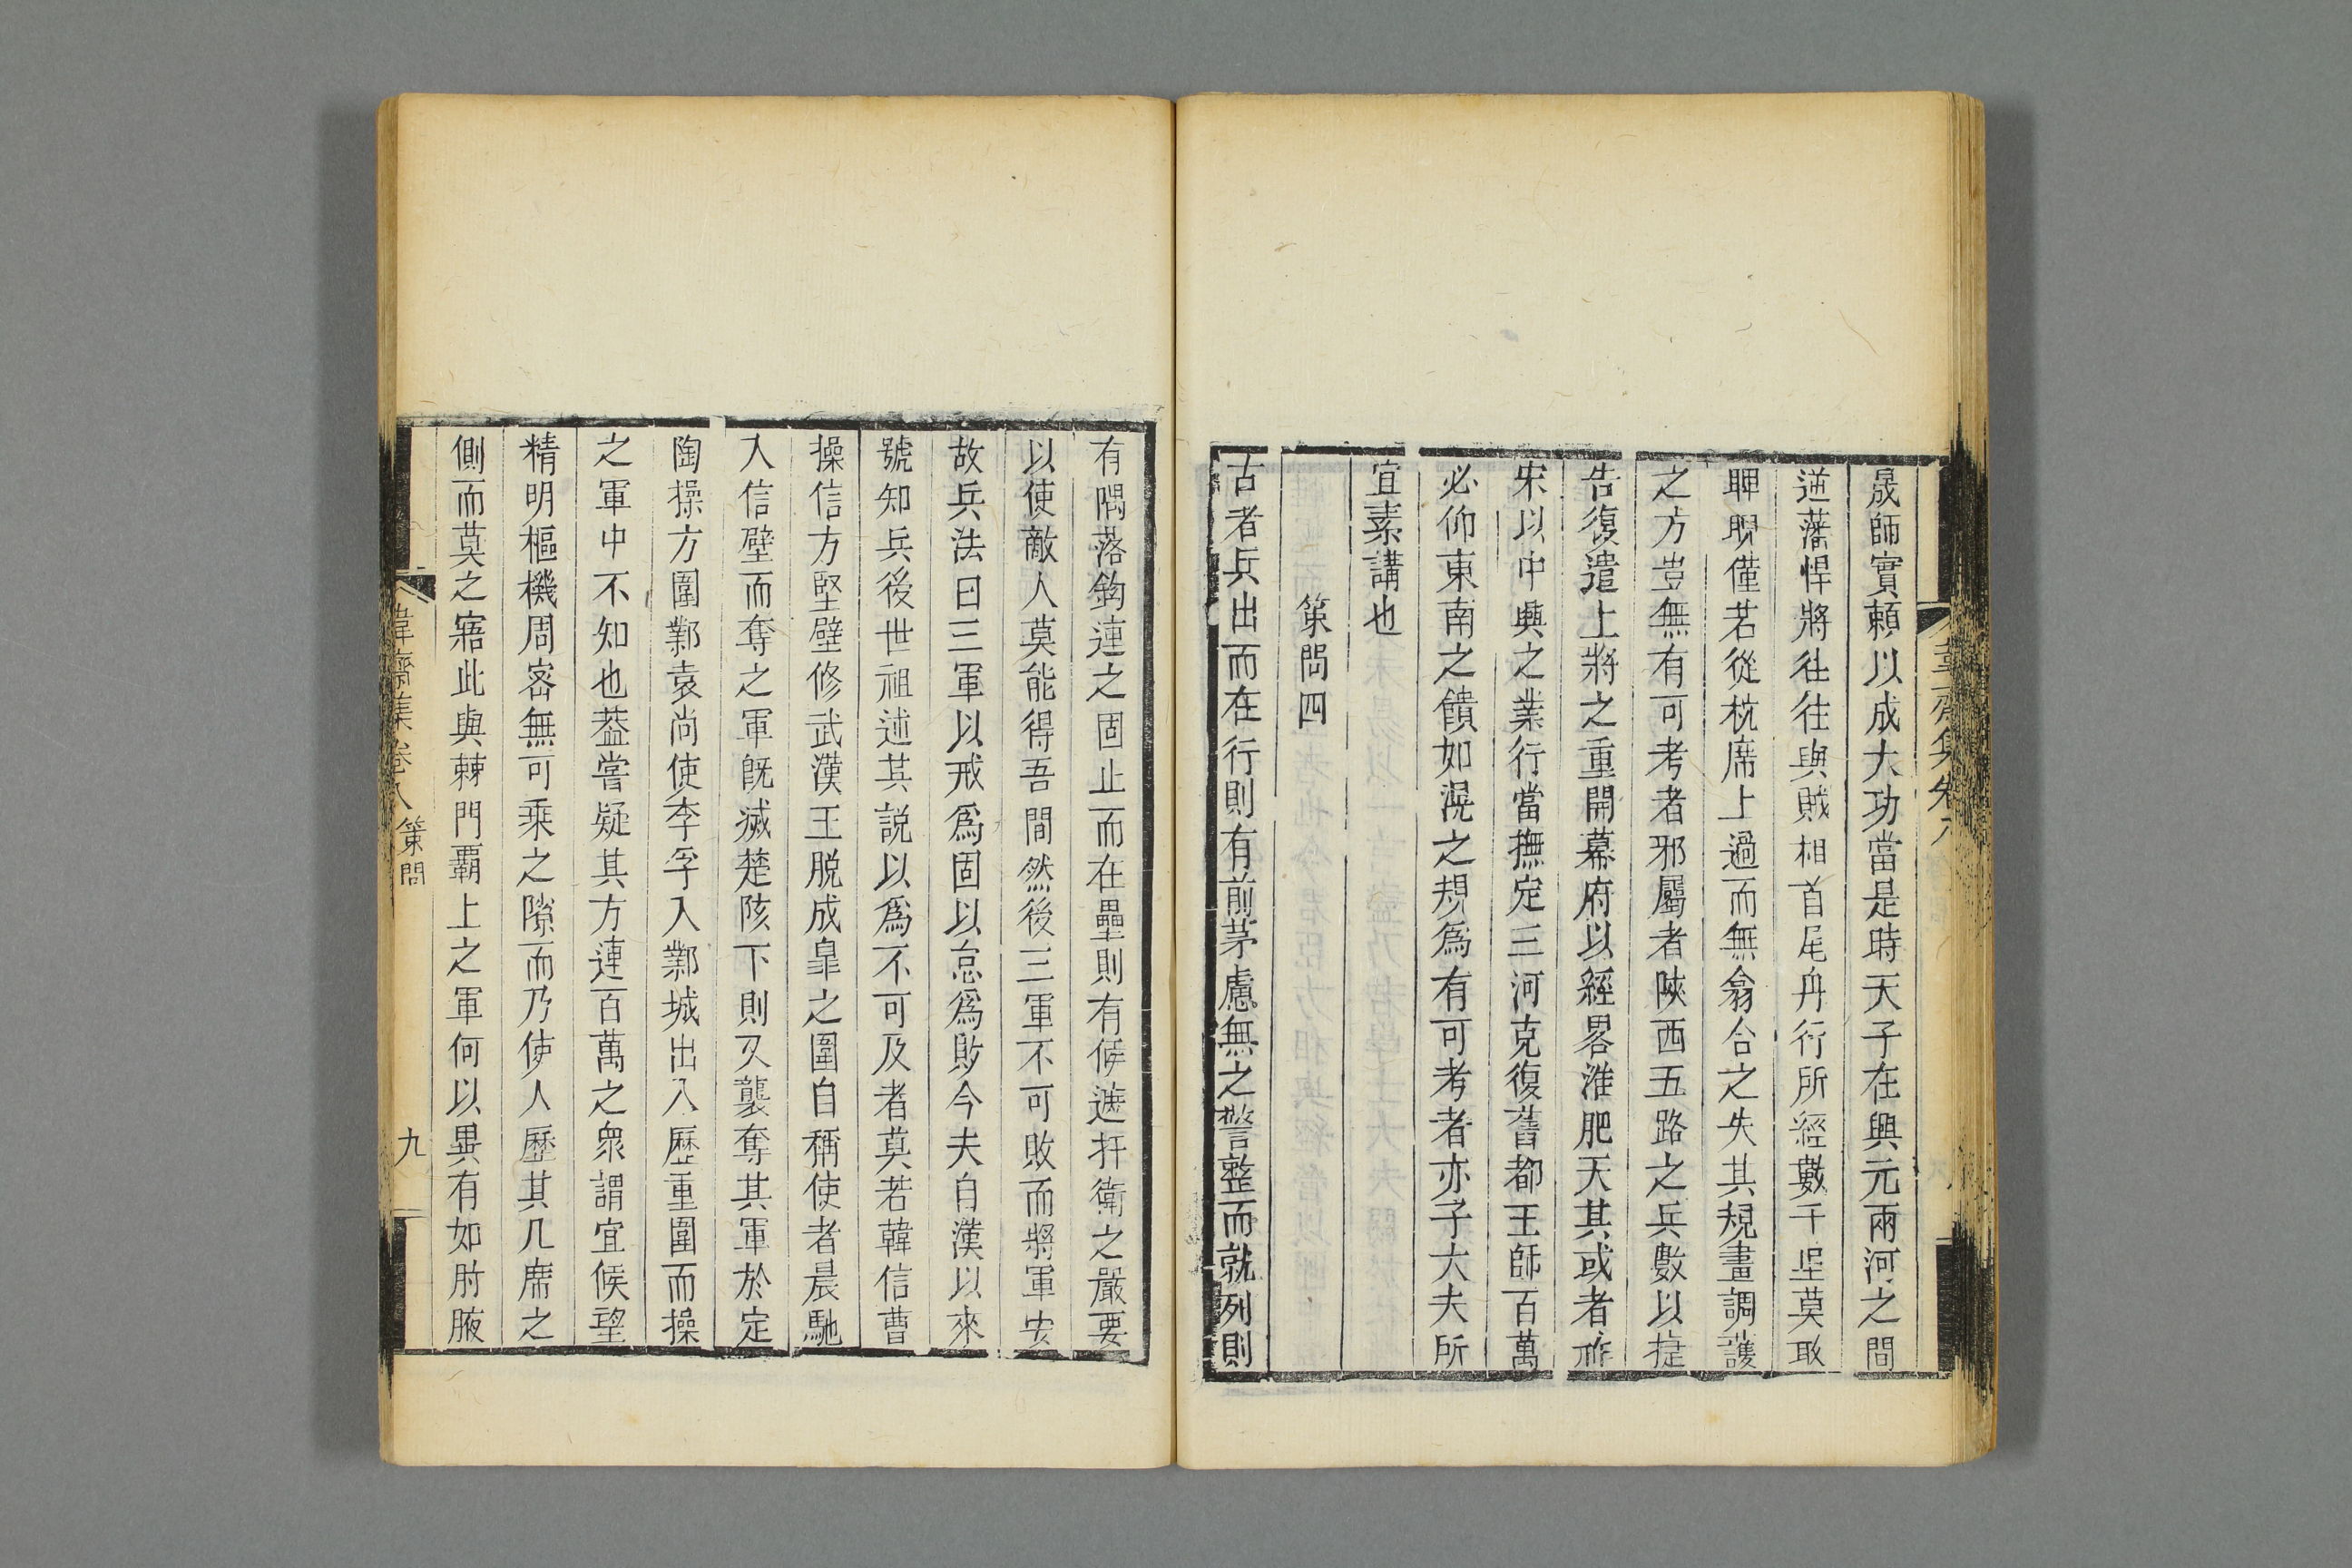 韋齋集卷八
晟師實賴以成大功當是時天子在興元兩河之間
逆藩悍將往往與賊相首尾舟行所經數千里莫敢
睥睨僅若從枕席上過而無翕合之失其規畫調護
之方豈無有可考者邪屬者陝西五路之兵數以捷
告復遣上將之重開幕府以經畧淮肥天其或者祚
宋以中興之業行當撫定三河克復舊都王師百萬
必仰東南之饋如滉之規爲有可考者亦子大夫所
宜素講也
策問四
古者兵出而在行則有前茅慮無之警整而就列則
有隅落鈎連之固止而在壘則有候遮扞衛之嚴要
以使敵人莫能得吾間然後三軍不可敗而將軍安
故兵法曰三軍以戒爲固以怠爲敗今夫自漢以來
號知兵後世祖述其説以爲不可及者莫若韓信曹
操信方堅壁修武漢王脱成臯之圍自稱使者晨馳
入信壁而奪之軍旣滅楚陔下則又襲奪其軍於定
陶操方圍鄴袁尚使李孚入鄴城出入歷重圍而操
之軍中不知也葢嘗疑其方連百萬之衆謂宜候望
精明樞機周宻無可乘之隙而乃使人歷其几席之
側而莫之寤此與棘門覇上之軍何以異有如肘腋
韋齋集卷八 策問 九